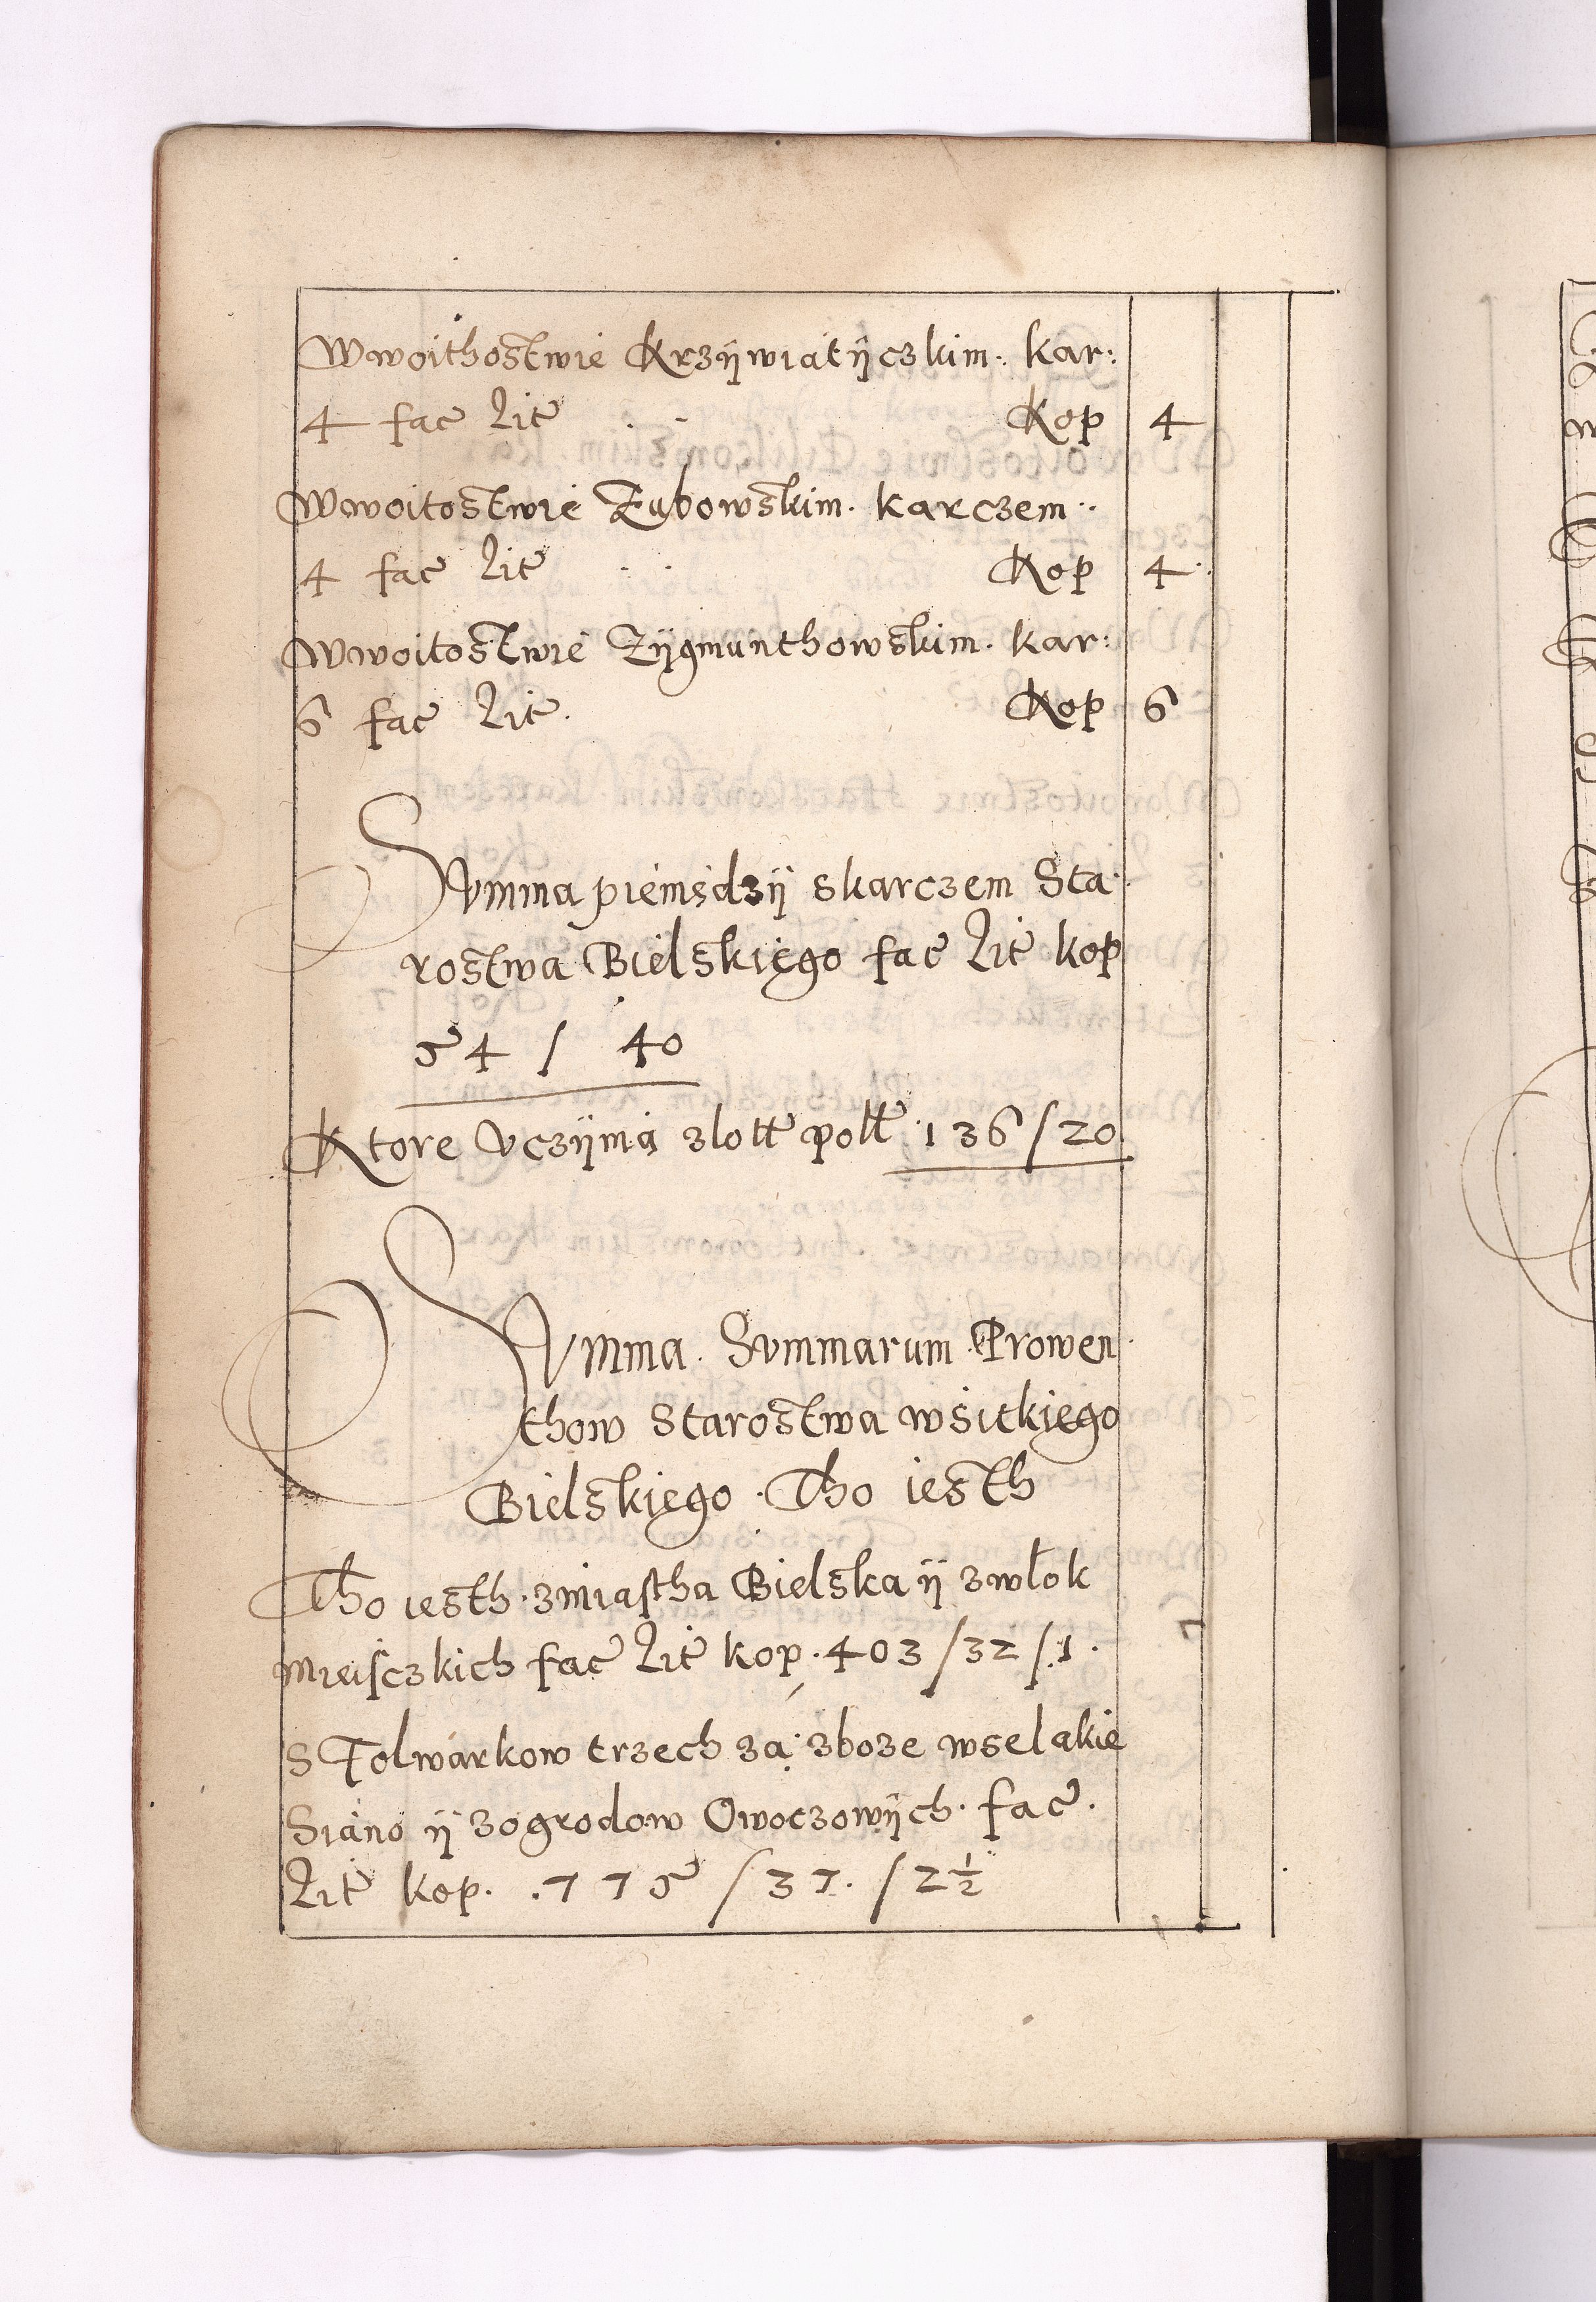 Wwoithostwie Krzÿwiatÿczkim. kar:
4 fac Lit Kop 4
Wwoitostwie Zubowskim. karczem.
4 fac Lit Kop 4
Wwoitostwie Zÿgmunthowskim. kar:
6 fac Lit. Kop 6
Summa pieniędzÿ skarczem Sta
rostwa Bielskiego fac Lit kop
54 / 40
Ktore vczÿnią złott poll 136/20
Summa. Summarum Prowen
thow Starostwa wsitkiego
Bielskiego. Tho iesth
Tho iesth. zmiastha Bielska ÿ zwłok
mieisczkich fac Lit kop. 403/32/1.
S Folwarkow trzech za zboze wselakie
Siano ÿ zogrodow Owoczowÿch. fac.
Lit kop. 775 /37. /2½